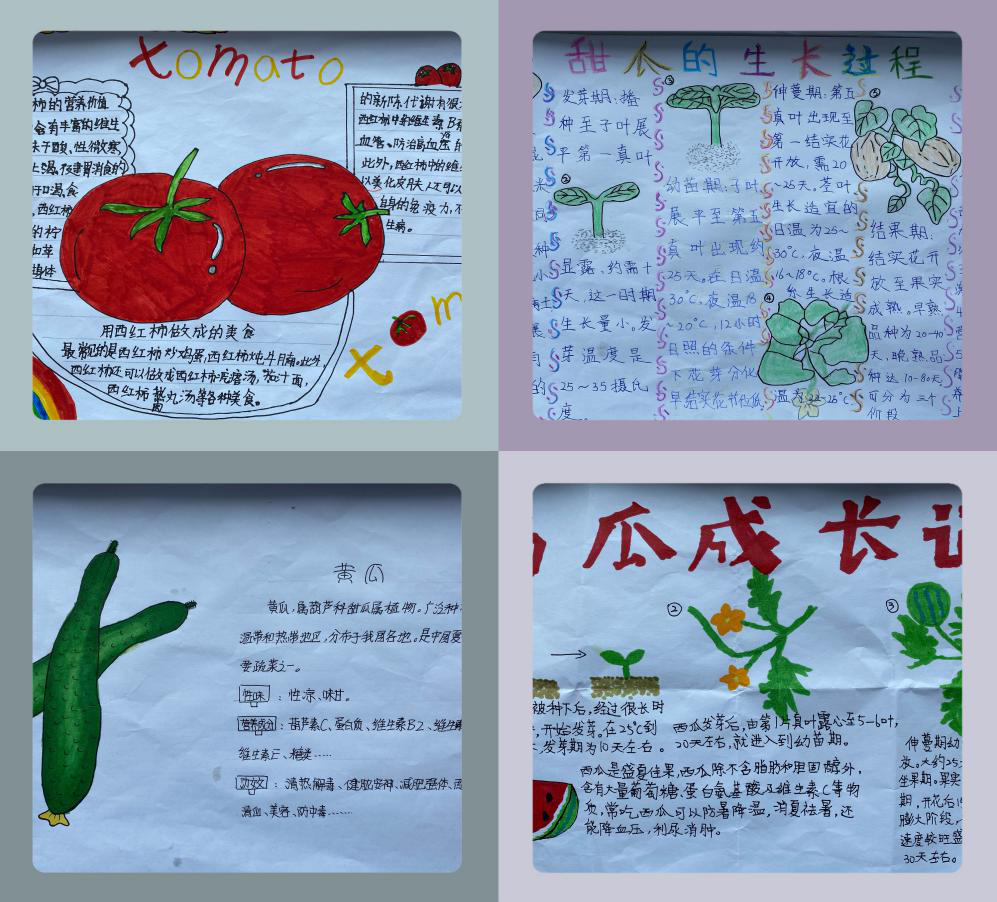 tomato
柿的营养价值
含有丰富的维生
的新陈代谢有很
血管、防治高血压
此外，西红柿中的维
以美化皮肤
的免疫力，不
生病。
西红柿
用西红柿做成的美食
最常见的是西红柿炒鸡蛋，西红柿炖牛月南。此外，
西红柿还可以做成西红柿
西红柿
丸汤等各种美食。
甜瓜的生长过程
发芽期：播
种至子叶展
平第一真叶
②
显露，约需十
天，这一时期
生长量小。发
芽温度是
25～35摄氏
度。
①
幼苗期：子叶
展平至第五
真叶出现约
25天。在日温
30℃，夜温18
～20℃，12小时
日照的条件
下花芽分化
早，结实花节位低。
伸蔓期：第五
真叶出现至
第一结实花
开放，需20
～25天，茎叶
生长适宜的
日温为25～
30℃，夜温
16～18℃。根
④
温为22-25℃
③
结果期：
结实花开
放至果实
成熟。早熟
品种为20-40
天，晚熟品
可分为三个
阶段
黄瓜
黄瓜，属葫芦科甜瓜属植物。广泛种
温带和热带地区，分布于我国各地。是中国夏
要蔬菜之一。
性味：性凉、味甘。
营养成分：葫芦素C、蛋白质、维生素B2、维生
维生素E、糖类……
功效：清热解毒、健脑安神、减肥强体、
美容、防中毒……
瓜成长
②
③
被种下后，经过很长时
，开始发芽。在25℃到
发芽期为10天左右。
西瓜发芽后，由第1片真叶露心至5—6叶，
20天左右，就进入到幼苗期。
西瓜是盛夏佳果，西瓜除不含脂肪和胆固醇外，
含有大量葡萄糖、蛋白氨基酸及维生素C等物
质，常吃西瓜可以防暑降温，消夏祛暑，还
能降血压，利尿消肿。
伸蔓期幼
发。大约25
坐果期。果实
期，开花后1
膨大阶段，
速度较旺盛
30天左右。